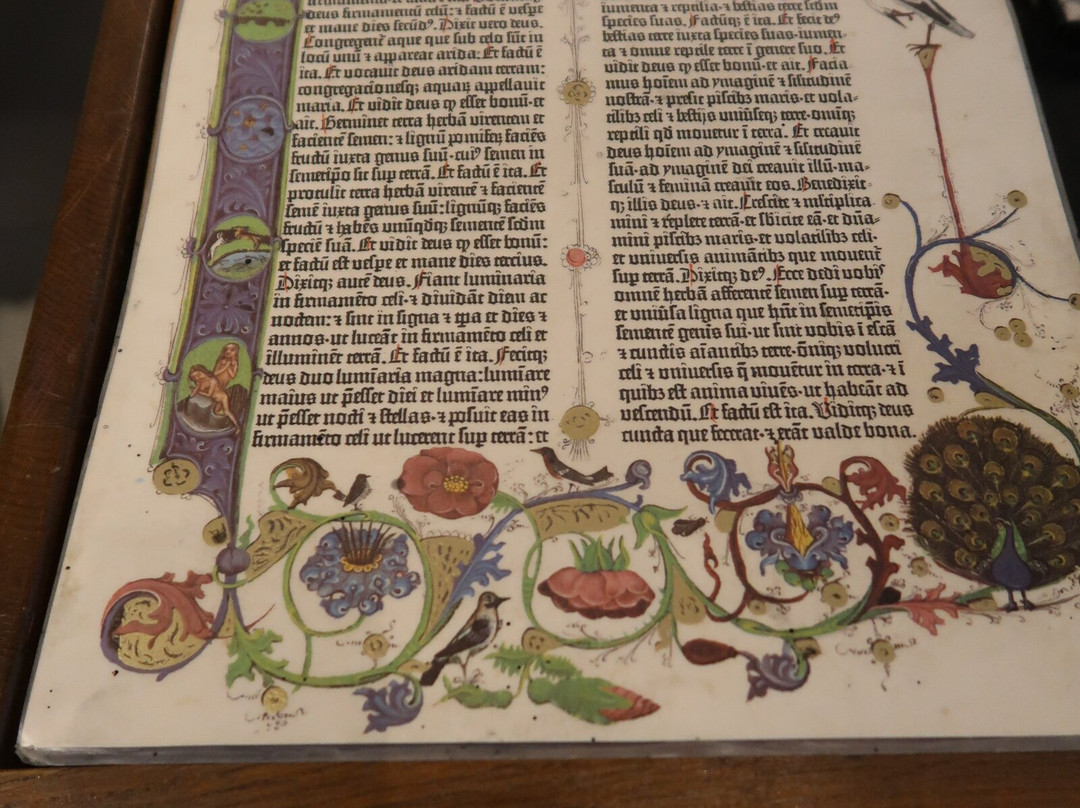 deus firmamentū celū: ⁊ factū ē vespe
et mane dies secūdꝰ. Dixit vero deus.
Congregent aque que sub celo sūt in
locū unū ⁊ appareat arida. Et factū ē
ita. Et vocavit deus aridam terram:
congregacionesqꝫ aquaꝝ appellauit
maria. Et vidit deus ꝙ esset bonū·et
ait. Germinet terra herbā virentem et
facientē semen: ⁊ lignū pomifeꝝ faciēs
fructū iuxta genus suū·cuiꝰ semen in
semetipo sit sup terrā. Et factū ē ita. Et
protulit terra herbā virentē ⁊ facientē
semē iuxta genus suū: lignūqꝫ faciēs
fructū ⁊ habēs unūqdqꝫ sementē scdm
speciē suā. Et vidit deus ꝙ esset bonū:
et factū est vespe et mane dies tercius.
Dixitqꝫ autē deus. Fiant luminaria
in firmamēto celi·⁊ dividāt diem ac
noctem: ⁊ sint in signa ⁊ tꝑa et dies ⁊
annos·ut luceāt in firmamēto celi et
illuminēt terrā. Et factū ē ita. Fecitqꝫ
deus duo lumīaria magna: lumīare
maius ut p̄esset diei et lumīare minꝰ
ut p̄esset nocti ⁊ stellas·⁊ posuit eas in
firmamēto celi ut lucerent sup terrā: et
iumenta ⁊ reptilia·⁊ bestias terre scdm
species suas. Factūqꝫ ē ita. Et fecit deꝰ
bestias terre iuxta species suas·iumen-
ta ⁊ omne reptile terre ī genere suo. Et
vidit deus ꝙ esset bonū·et ait. Facia-
mus hoīem ad ymaginē ⁊ silitudinē
nostrā·⁊ presit piscibꝫ maris·et vola-
tilibꝫ celi ⁊ bestijs uniūseqꝫ terre·omīqꝫ
reptili qd mouetur ī terra. Et creauit
deus hoīem ad ymaginē ⁊ silitudinē
suā·ad ymaginē dei creavit illū·ma-
sculū ⁊ feminā creavit eos. Benedixit-
qꝫ illis deus·⁊ ait. Crescite ⁊ mltiplica-
mini ⁊ replete terrā·et sbicite eā·et dña-
mini piscibꝫ maris·et volatilibꝫ celi·
et vniuersis animātibꝫ que mouent᷑
sup terrā. Dixitqꝫ deꝰ. Ecce dedi vobis
omnē herbā afferentē semen sup terrā·
et vniūsa ligna que hñt in semetipis
sementē genīs sui·ut sint vobis ī escā
⁊ cunctis aīantibꝫ terre·omīqꝫ volucri
celi ⁊ vniuersis q̄ mouētur in terra·⁊ ī
quibꝫ est anima vivēs·ut habeāt ad
vescendū. Et factū est ita. Viditqꝫ deus
cuncta que fecerat·⁊ erāt valde bona.